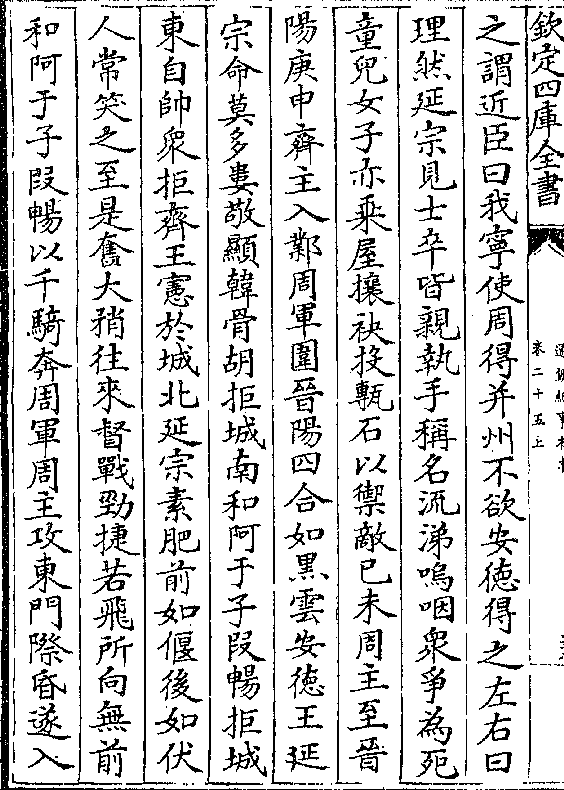 欽定四庫全書
通鑑紀事本末
卷二十五上
之謂近臣曰我寧使周得并州不欲安德得之左右曰
理然延宗見士卒皆親執手稱名流涕嗚咽衆爭為死
童兒女子亦乗屋攘袂投甎石以禦敵已未周主至晉
陽庚申齊主入鄴周軍圍晉陽四合如黒雲安德王延
宗命莫多婁敬顯韓骨胡拒城南和阿于子段暢拒城
東自帥衆拒齊王憲於城北延宗素肥前如偃後如伏
人常笑之至是奮大矟往來督戰勁捷若飛所向無前
和阿于子段暢以千騎奔周軍周主攻東門際昏遂入